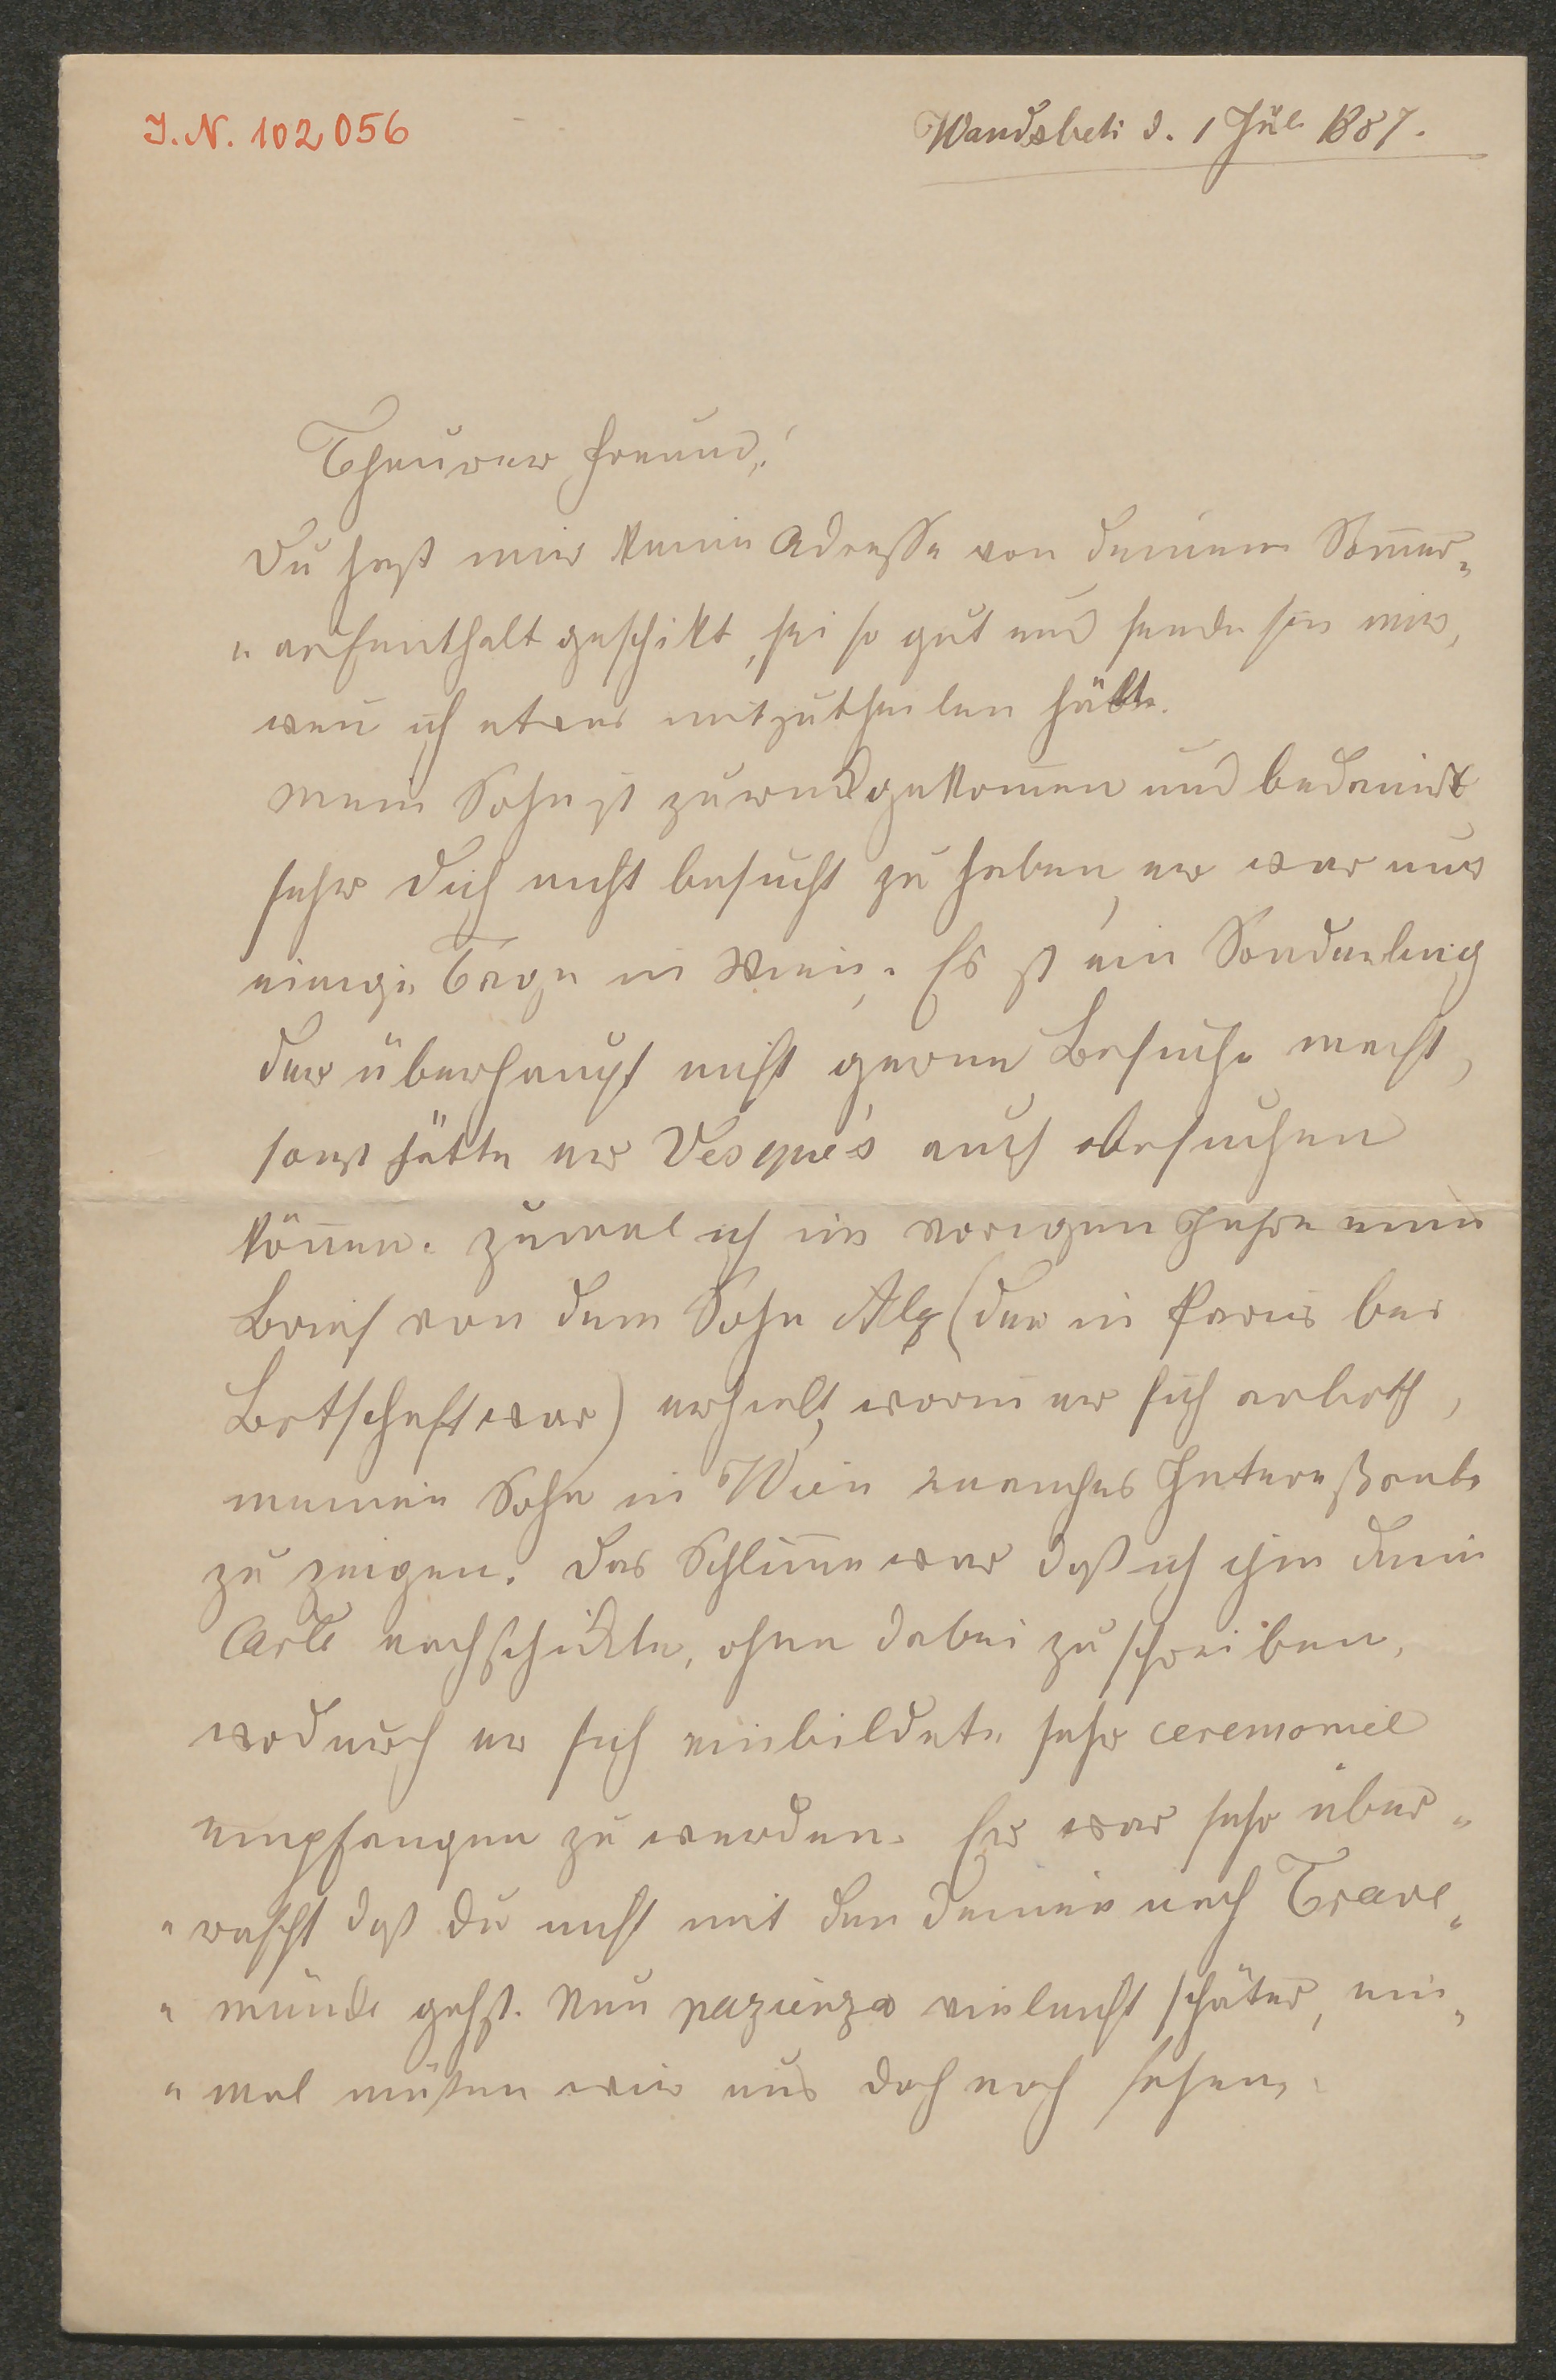 I.N. 102056
Wandsbek d. 1 Jul 1887.
Theurer Freund!
Du hast mir keine Adresse von deinem Som̄er-
"aufenthalt geschikt, sei so gut und sende sie mir,
wen̄ ich etwas mitzutheilen hätte.
Mein Sohn ist zurückgekom̄en und bedauert
sehr dich nicht besucht zu haben, er war nur
einige Tage in Wien. Es ist ein Sonderling
der überhaupt nicht gerne Besuche macht,
sonst hätte er Vesque's auch besuchen
kön̄en. zumal ich im vorigen Jahre einen
Brief von dem Sohn Alex (der in Paris bei
Botschaft war) erhielt, worin er sich anboth,
meinem Sohn in Wien manches Intereßante
zu zeigen. Das Schlim̄e war daß ich ihm deine
Carte nachschickte, ohne dabei zu schreiben,
wodurch er sich einbildete sehr ceremoniel
empfangen zu werden. Er war sehr über-
"rascht daß du nicht mit den deinen nach Trave-
"münde gehst. Nun pazienza vielleicht später, ein-
"mal müßen wir uns doch noch sehen.